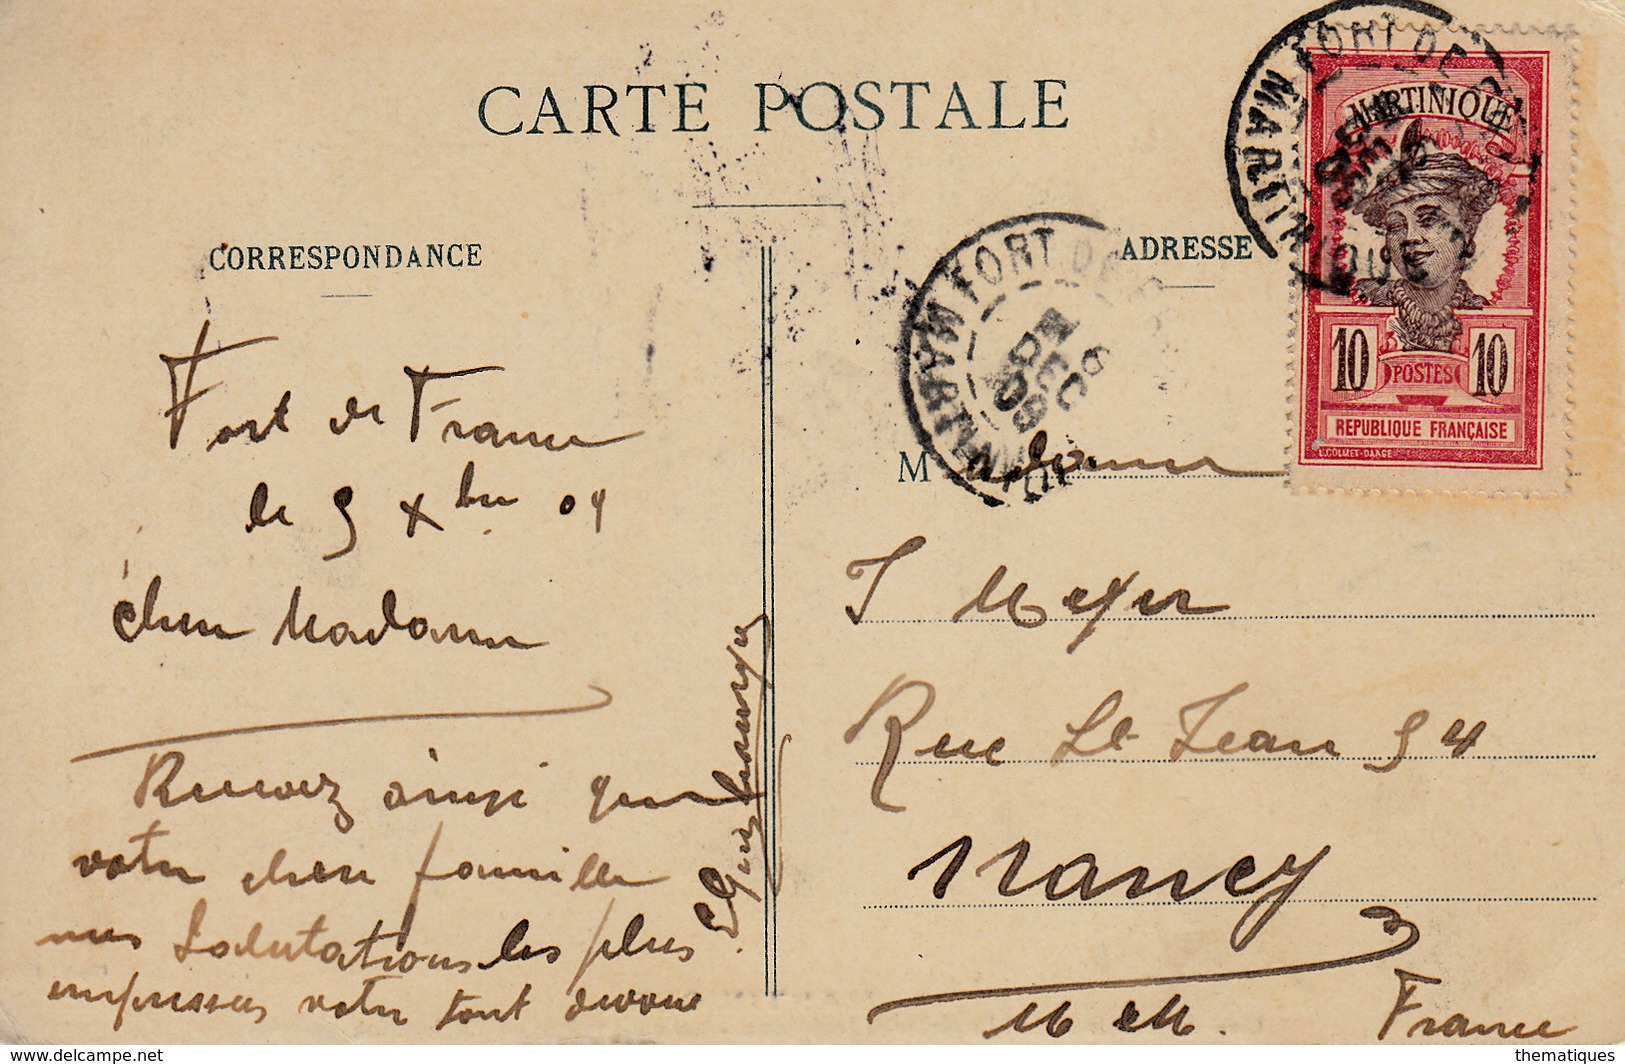 CARTE POSTALE
CORRESPONDANCE
ADRESSE
Fort de France
le 5 Xbre 09
Chère Madame
Recevez ainsi que
votre chère famille
mes Salutations les plus
empressées votre tout dévoué
FORT DE
MARTINIQUE
6
DEC
09
FORT DE
MARTINIQUE
DEC
MARTINIQUE
10
POSTES
10
REPUBLIQUE FRANÇAISE
L.COLMET-DAAGE
Madame
J Meyer
Rue St Jean 54
Nancy
M et M. France
thematiques